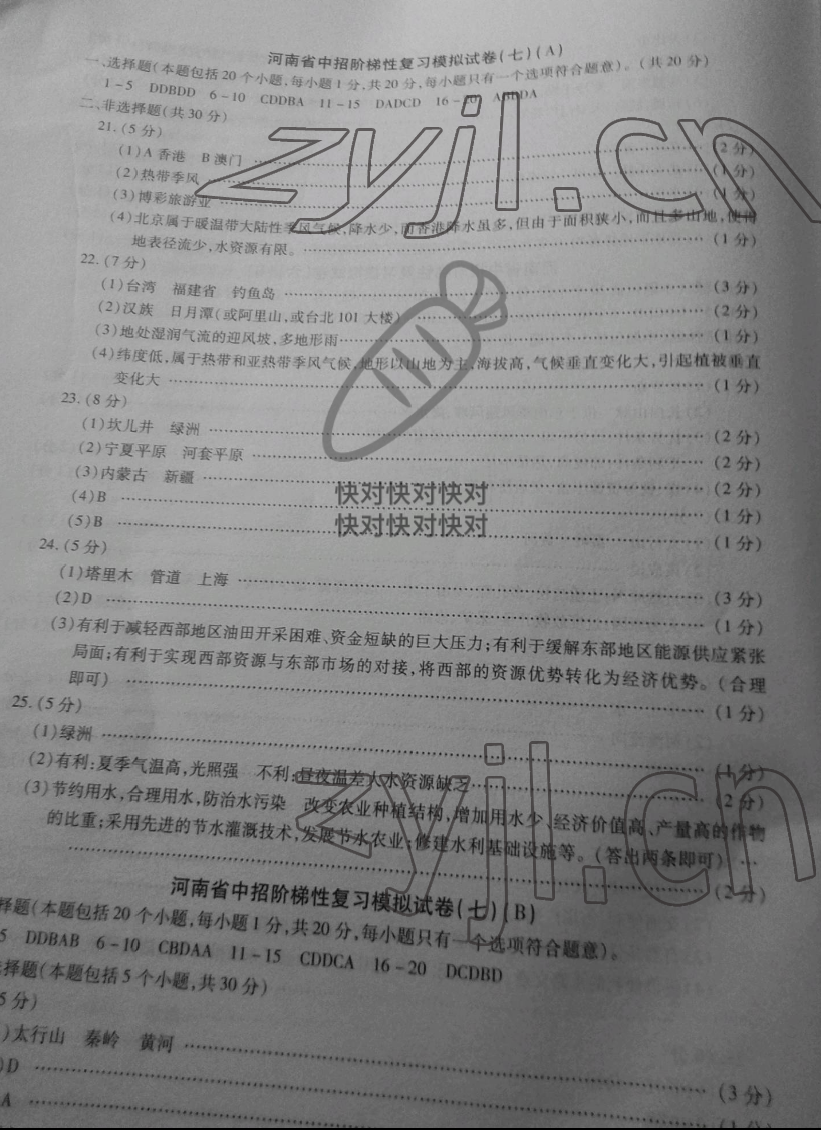 河南省中招阶梯性复习模拟试卷(七)(A)
一、选择题(本题包括20个小题,每小题1分,共20分,每小题只有一个选项符合题意)。(共20分)
1-5 DDBDD 6-10 CDDBA 11-15 DADCD 16-20 ABDDA
二、非选择题(共30分)
21.(5分)
(1)A香港 B澳门 (2分)
(2)热带季风 (1分)
(3)博彩旅游业 (1分)
(4)北京属于暖温带大陆性季风气候,降水少,而香港降水虽多,但由于面积狭小,而且多山地,使得
地表径流少,水资源有限。 (1分)
22.(7分)
(1)台湾 福建省 钓鱼岛 (3分)
(2)汉族 日月潭(或阿里山,或台北101大楼) (2分)
(3)地处湿润气流的迎风坡,多地形雨 (1分)
(4)纬度低,属于热带和亚热带季风气候,地形以山地为主,海拔高,气候垂直变化大,引起植被垂直
变化大 (1分)
23.(8分)
(1)坎儿井 绿洲 (2分)
(2)宁夏平原 河套平原 (2分)
(3)内蒙古 新疆 (2分)
(4)B (1分)
(5)B (1分)
24.(5分)
(1)塔里木 管道 上海 (3分)
(2)D (1分)
(3)有利于减轻西部地区油田开采困难、资金短缺的巨大压力;有利于缓解东部地区能源供应紧张
局面;有利于实现西部资源与东部市场的对接,将西部的资源优势转化为经济优势。(合理
即可) (1分)
25.(5分)
(1)绿洲 (1分)
(2)有利:夏季气温高,光照强 不利:昼夜温差大水资源缺乏 (2分)
(3)节约用水,合理用水,防治水污染 改变农业种植结构,增加用水少、经济价值高、产量高的作物
的比重;采用先进的节水灌溉技术,发展节水农业;修建水利基础设施等。(答出两条即可)
(2分)
河南省中招阶梯性复习模拟试卷(七)(B)
择题(本题包括20个小题,每小题1分,共20分,每小题只有一个选项符合题意)。
5 DDBAB 6-10 CBDAA 11-15 CDDCA 16-20 DCDBD
选择题(本题包括5个小题,共30分)
5分)
)太行山 秦岭 黄河 (3分)
)D
A (1分)
zyjl.cn
快对快对快对
快对快对快对
zyjl.cn